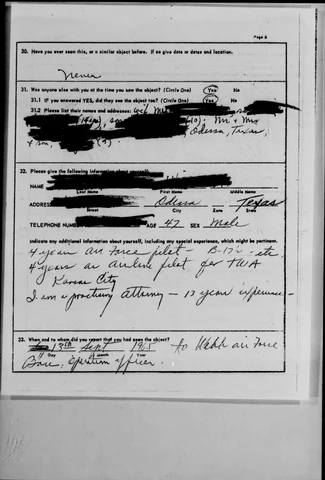 Page 6
30. Have you ever seen this, or a similar object before. If so give date or dates and location.
Never
31. Was anyone else with you at the time you saw the object? (Circle One) Yes No
31.1 If you answered YES, did they see the object too? (Circle One) Yes No
31.2 Please list their names and addresses:
Mr + Mrs
Odessa, Texas,
4 son,
32. Please give the following information about yourself:
NAME
Last Name First Name Middle Name
ADDRESS Odessa Texas
Street City Zone State
TELEPHONE NUMBER AGE 47 SEX Male
Indicate any additional information about yourself, including any special experience, which might be pertinent.
4 years Air Force pilot - B-17's - etc
4 years as airline pilot for TWA
Kansas City
I am a practicing attorney - 13 years experience -
33. When and to whom did you report that you had seen the object?
13th Sept 1965 to Webb Air Force
Day Month Year
Base, Operations officer.